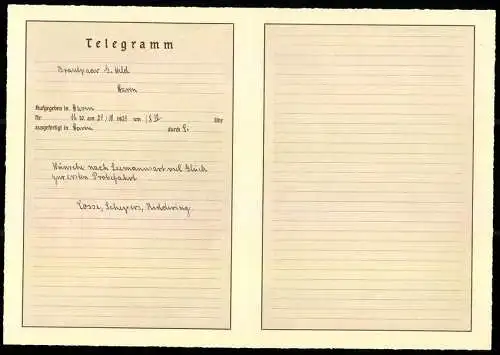 Telegramm
Brautpaar
Hamm
Aufgegeben in Hamm
Nr. am um Uhr
ausgefertigt in Hamm durch
Wünsche nach Seemannsart viel Glück
zur ersten Probefahrt
Losse, Schepers, Riddering